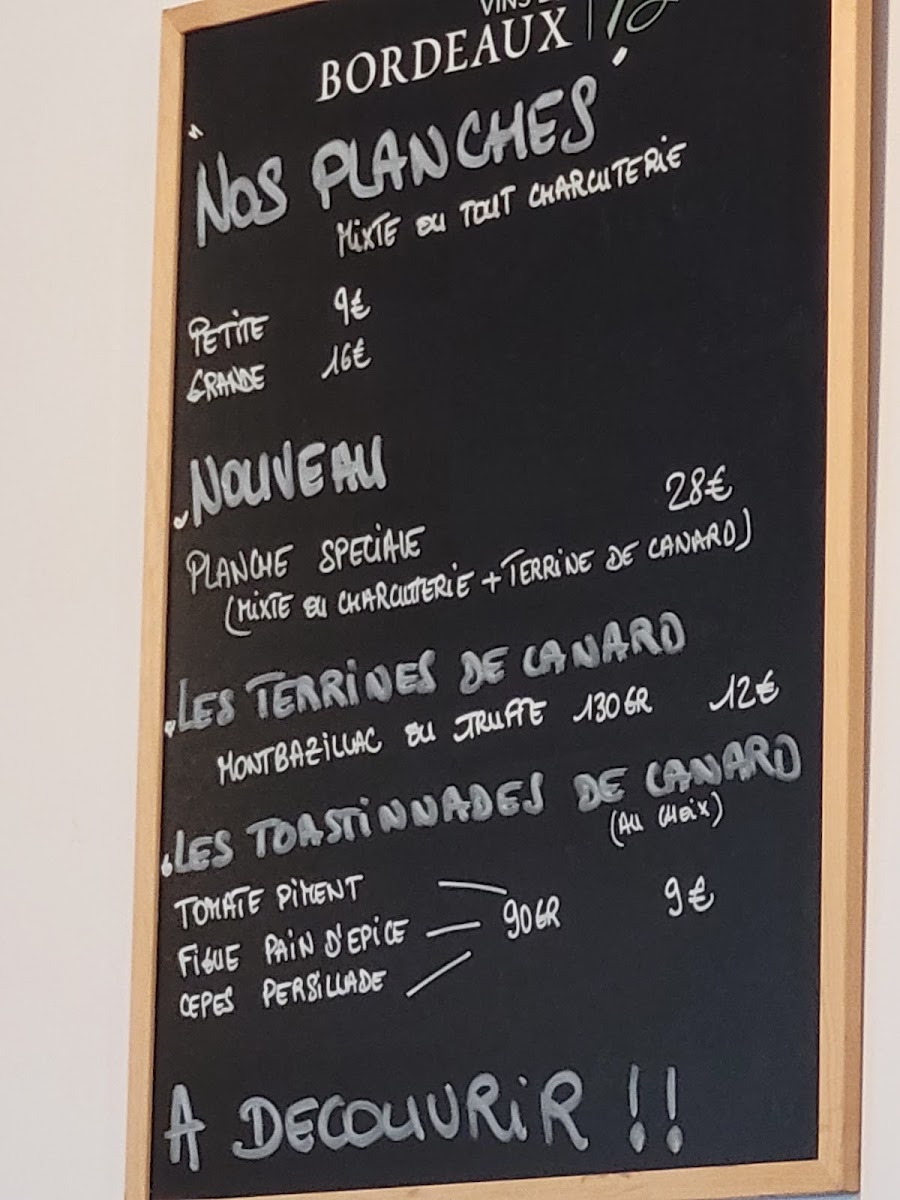 VINS
BORDEAUX
"NOS PLANCHES"
MIXTE OU TOUT CHARCUTERIE
PETITE 9€
GRANDE 16€
NOUVEAU
PLANCHE SPECIALE 28€
(MIXTE OU CHARCUTERIE + TERRINE DE CANARD)
LES TERRINES DE CANARD
MONTBAZILLAC OU TRUFFE 130GR 12€
LES TOASTINNADES DE CANARD
(AU CHOIX)
TOMATE PIMENT
FIGUE PAIN D'EPICE 90GR 9€
CEPES PERSILLADE
A DECOUVRIR !!